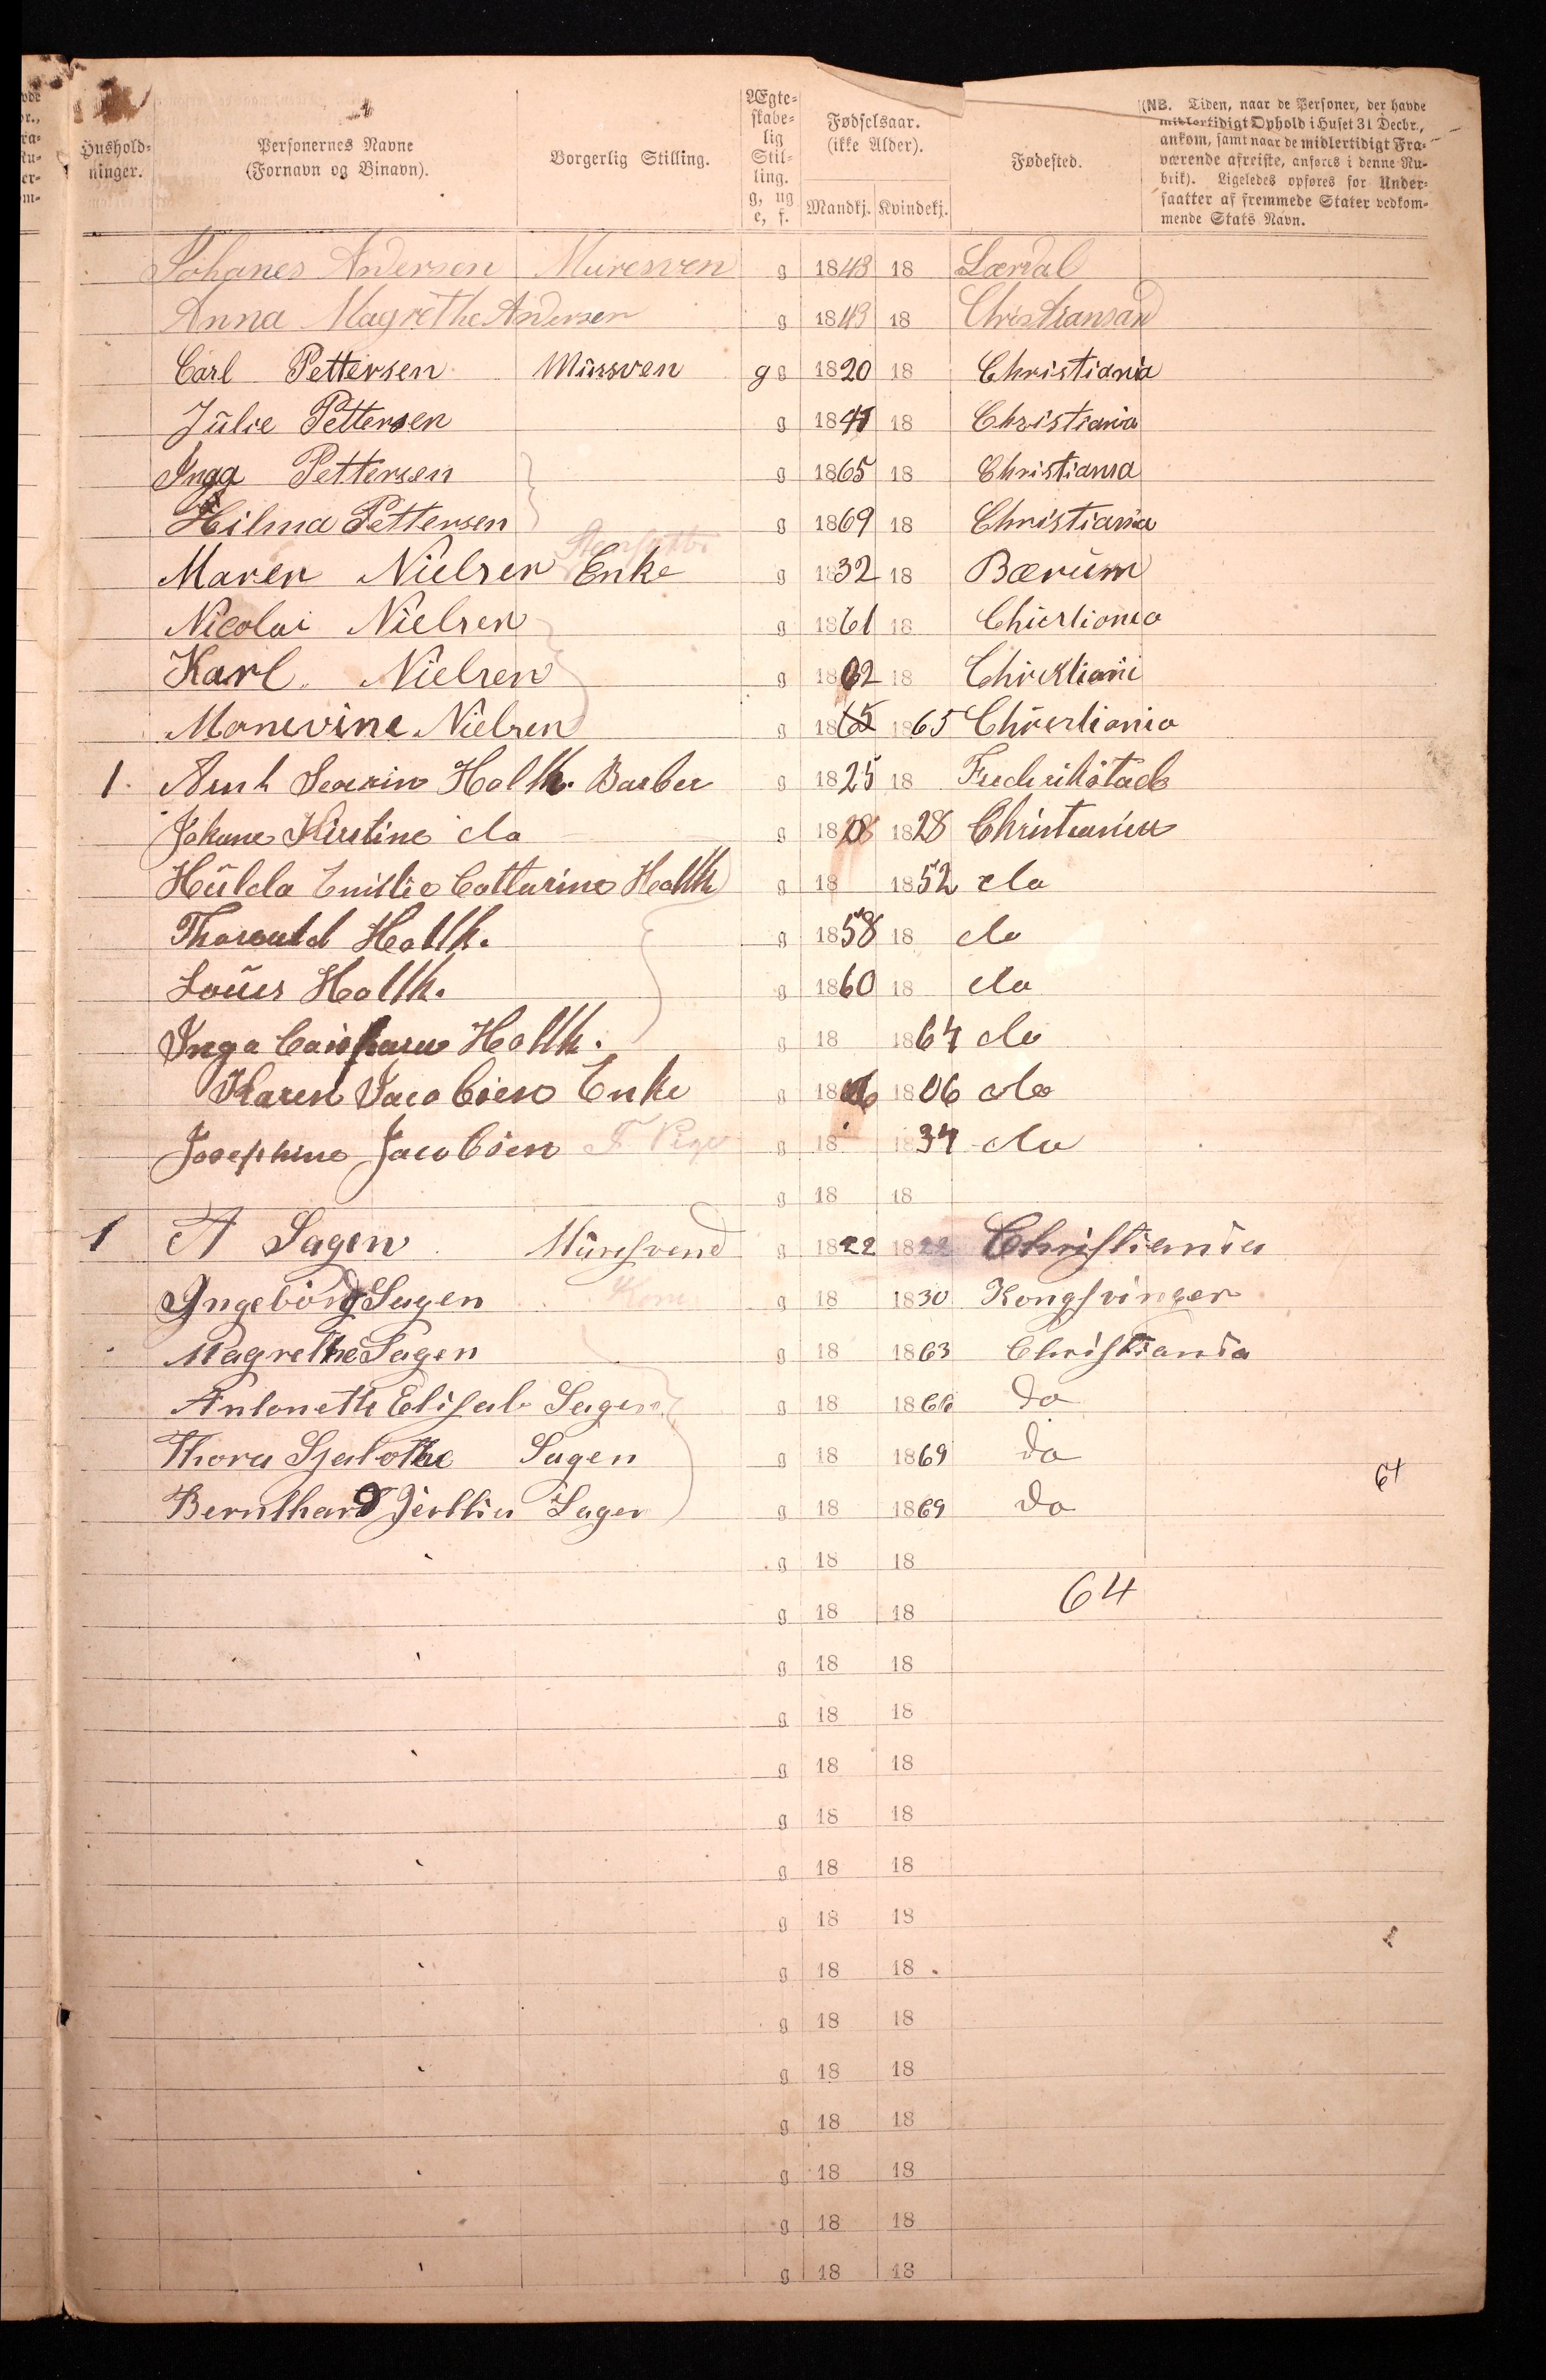 Hushold-ninger. Personernes Navne (Fornavn og Binavn). Borgerlig Stilling. Ægte-skabe-lig Stil-ling. g, ug e, f. Fødselsaar. (ikke Alder). Mandkj. Kvindekj. Fødested. (NB. Tiden, naar de Personer, der havde midlertidigt Ophold i Huset 31 Decbr., ankom, samt naar de midlertidigt Fra-værende afreiste, anføres i denne Ru-brik). Ligeledes opføres for Under-saatter af fremmede Stater vedkom-mende Stats Navn.
Johanes Andersen Muresven g 1843 18 Lærdal
Anna Magrethe Andersen g 1843 18 Christiansand
Carl Pettersen Mursven g g 1820 18 Christiania
Julie Pettersen g 1841 18 Christiania
Inga Pettersen g 1865 18 Christiania
Hilma Pettersen g 1869 18 Christiania
Maren Nielsen Enke g 1832 18 Bærum
Nicolai Nielsen g 1861 18 Christiania
Karl Nielsen g 1862 18 Christiani
Monevine Nielsen g 1865 1865 Christiania
1. Arnt Severin Holth. Barber g 1825 18 Fredrikstad
Johane Kirstine do g 1828 1828 Christiania
Hulda Emilie Catturine Holth g 18 1852 do
Thorvald Holth. g 1858 18 do
Louis Holth. g 1860 18 do
Inga Holth. g 18 1864 do
Karen Jacobsen Enke g 1806 1806 do
Josephine Jacobsen F. Pige g 18 1834 do
g 18 18
1 A Sagen Muresvend g 1822 1822 Christiania
Ingeborg Sagen Kone g 18 1830 Kongsvinger
Magrethe Sagen g 18 1863 Christiania
Antoneth Elisab Sagen g 18 1866 do
Thora Sjalothe Sagen g 18 1869 do
64
Bernthard Sagen g 18 1869 do
g 18 18
g 18 18 64
g 18 18
g 18 18
g 18 18
g 18 18
g 18 18
g 18 18
g 18 18
g 18 18
g 18 18
g 18 18
g 18 18
g 18 18
g 18 18